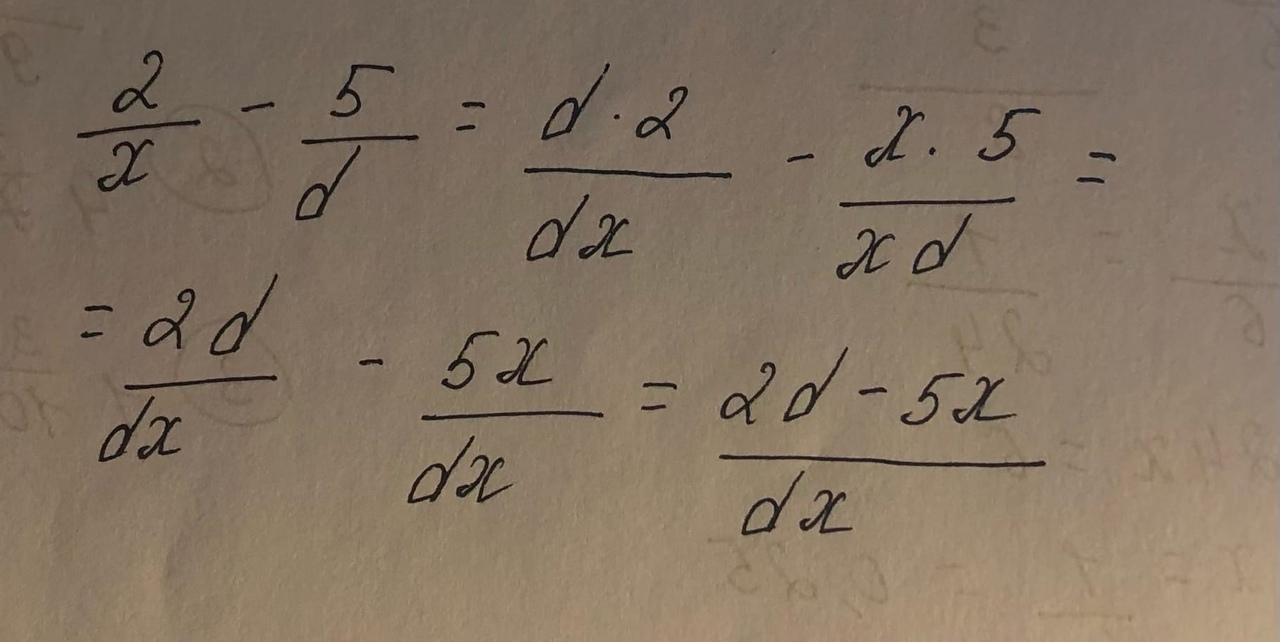 2/x - 5/d = d·2/dx - x·5/xd =
= 2d/dx - 5x/dx = 2d-5x/dx